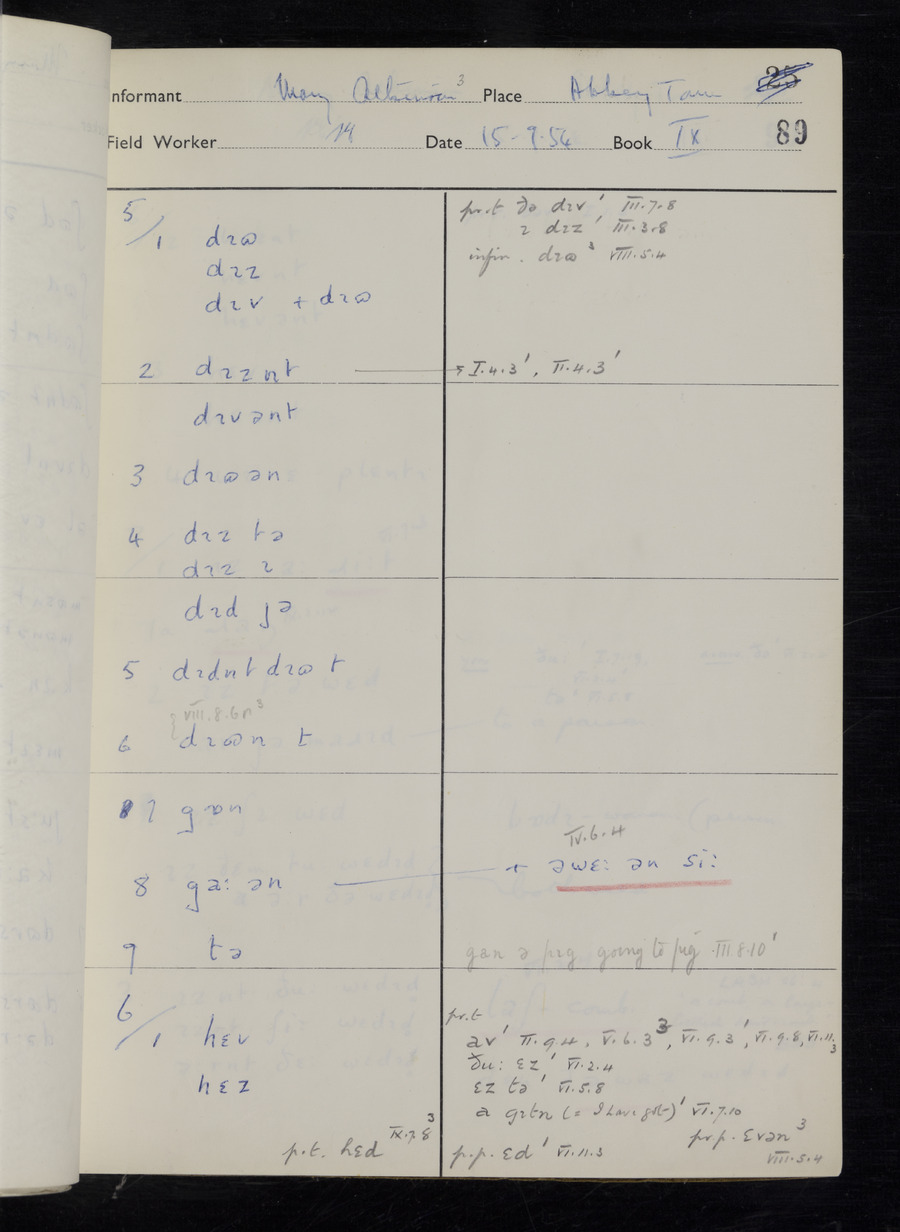 Informant Mary Atkinson ³ Place Abbey Town 25
Field Worker 14 Date 15-9-54 Book IX 89
5/1 dɪɷ
dɪz
dɪv + dɪɷ
pr.t ðə dɪv ' III.7.8
ɪ dɪz ' III.3.8
infin. dɪɷ ³ VIII.5.4
2 dɪznt I.4.3', II.4.3'
dɪvənt
3 dɪɷən
4 dɪz tə
dɪz ɪ
dɪd jə
5 dɪdnt dɪɷ t
VIII.8.6n³
6 dɪɷn t
7 gɒn
IV.6.4
8 ga: ən + əwɛ: ən si:
9 tə gan ə pɪg going to pig III 8.10'
6/1 hɛv
hɛz
pr.t
av' II.9.4, V.6.3 3, VI.9.3', VI.9.8, VI.11.3
ðu: ɛz' VI.2.4
ɛz tə' VI.5.8
a gɪtn (= I have got)' VI.7.10
p.t. hɛd ³ IX.7.8 p.p. ɛd' VI.11.3 pr.p. ɛvən ³ VIII.5.4